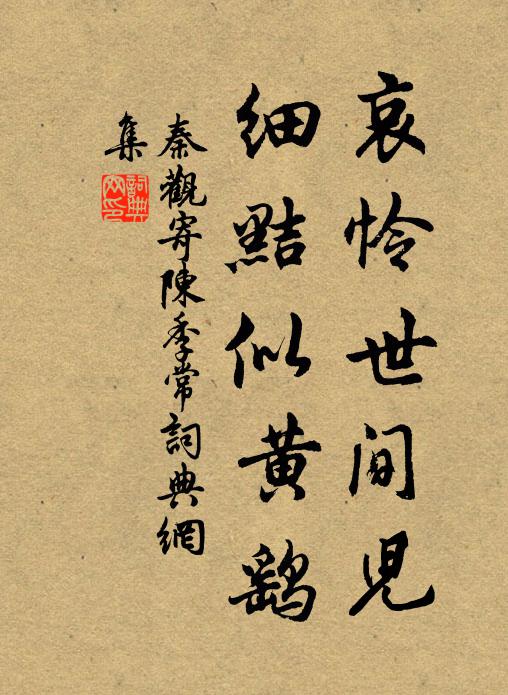 哀怜世间児
细黠似黄鷂
秦觀寄陳季常詞典網
集
詞典
网印